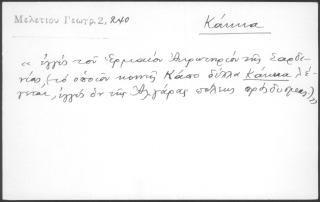 Μελετίου Γεωγρ. 2, 240
Κάκκα
« ἐγγὺς τοῦ Ἑρμαίου Ἀκρωτηρίου τῆς Σαρδε-
νίας, (τὸ ὁποῖον κοινῶς Κάπο δέλλα Κάκκα λέ-
γεται, ἐγγὺς ὂν τῆς Ἀλγάρας πόλεως πρὸς δυσμάς)»